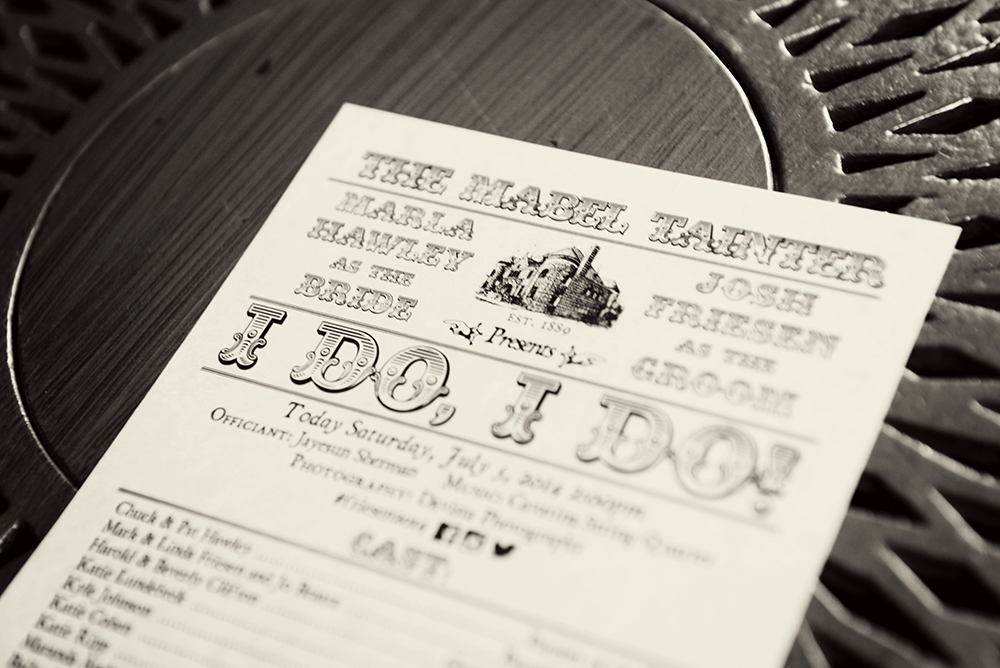 THE MABEL TAINTER
MARLA
HAWLEY
AS THE
BRIDE
EST. 1889
Presents
JOSH
FRIESEN
AS THE
GROOM
I DO, I DO!
Today Saturday, July 5, 2014 2:00pm
OFFICIANT: Jaytsun Sherman MUSIC: Cavatina String Quartet
PHOTOGRAPHY: Photography
CAST
Chuck & Pat Hawley
Mark & Linda Friesen and Jo Brown
Harold & Beverly
Katie
Kyle Johnson
Katie Cohen
Katie